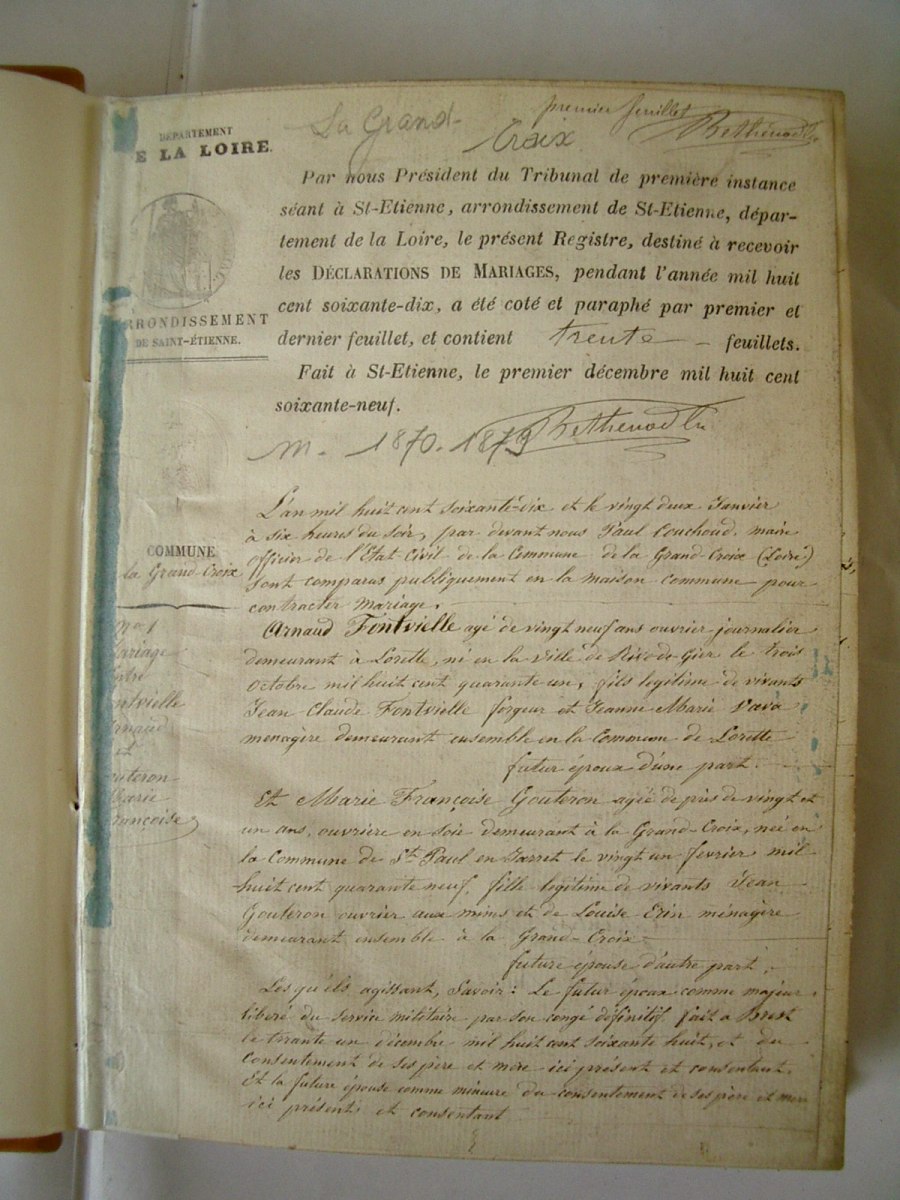 DÉPARTEMENT
E LA LOIRE.
La Grand-
Croix
premier feuillet
Par nous Président du Tribunal de première instance
séant à St-Etienne, arrondissement de St-Etienne, dépar-
tement de la Loire, le présent Registre, destiné à recevoir
les DÉCLARATIONS DE MARIAGES, pendant l'année mil huit
cent soixante-dix, a été coté et paraphé par premier et
dernier feuillet, et contient trente feuillets.
Fait à St-Etienne, le premier décembre mil huit cent
soixante-neuf.
RRONDISSEMENT
DE SAINT-ÉTIENNE.
M. 1870. 1879
COMMUNE
la Grand-Croix
L'an mil huit cent soixante-dix et le vingt deux Janvier
à six heures du soir, par devant nous Paul Couchoud, maire
officier de l'Etat Civil de la Commune de la Grand-Croix (Loire)
sont comparus publiquement en la maison commune pour
contracter mariage.
Arnaud Fontvielle agé de vingt neuf ans ouvrier journalier
demeurant à Lorette, né en la ville de Rive de Gier le trois
Octobre mil huit cent quarante un, fils legitime de vivants
Jean Claude Fontvielle forgeur et Jeanne Marie
menagère demeurant ensemble en la Commune de Lorette
futur époux d'une part.
Et Marie Françoise Gouteron agée de près de vingt et
un ans, ouvrière en soie demeurant à la Grand-Croix, née en
la Commune de St Paul en Jarret le vingt un fevrier mil
huit cent quarante neuf, fille legitime de vivants Jean
Gouteron ouvrier aux mines et de Louise Erin ménagère
demeurant ensemble à la Grand-Croix
future épouse d'autre part.
Lesquels agissant, Savoir: Le futur époux comme majeur
libéré du service militaire par son congé définitif fait a Brest
le trente un décembre mil huit cent soixante huit, et du
consentement de ses père et mère ici présent et consentant.
Et la future épouse comme mineure du consentement de ses père et mere
ici présent et consentant
no 1
ariage
ntre
ntvielle
rnaud
et
outeron
arie
rançoise